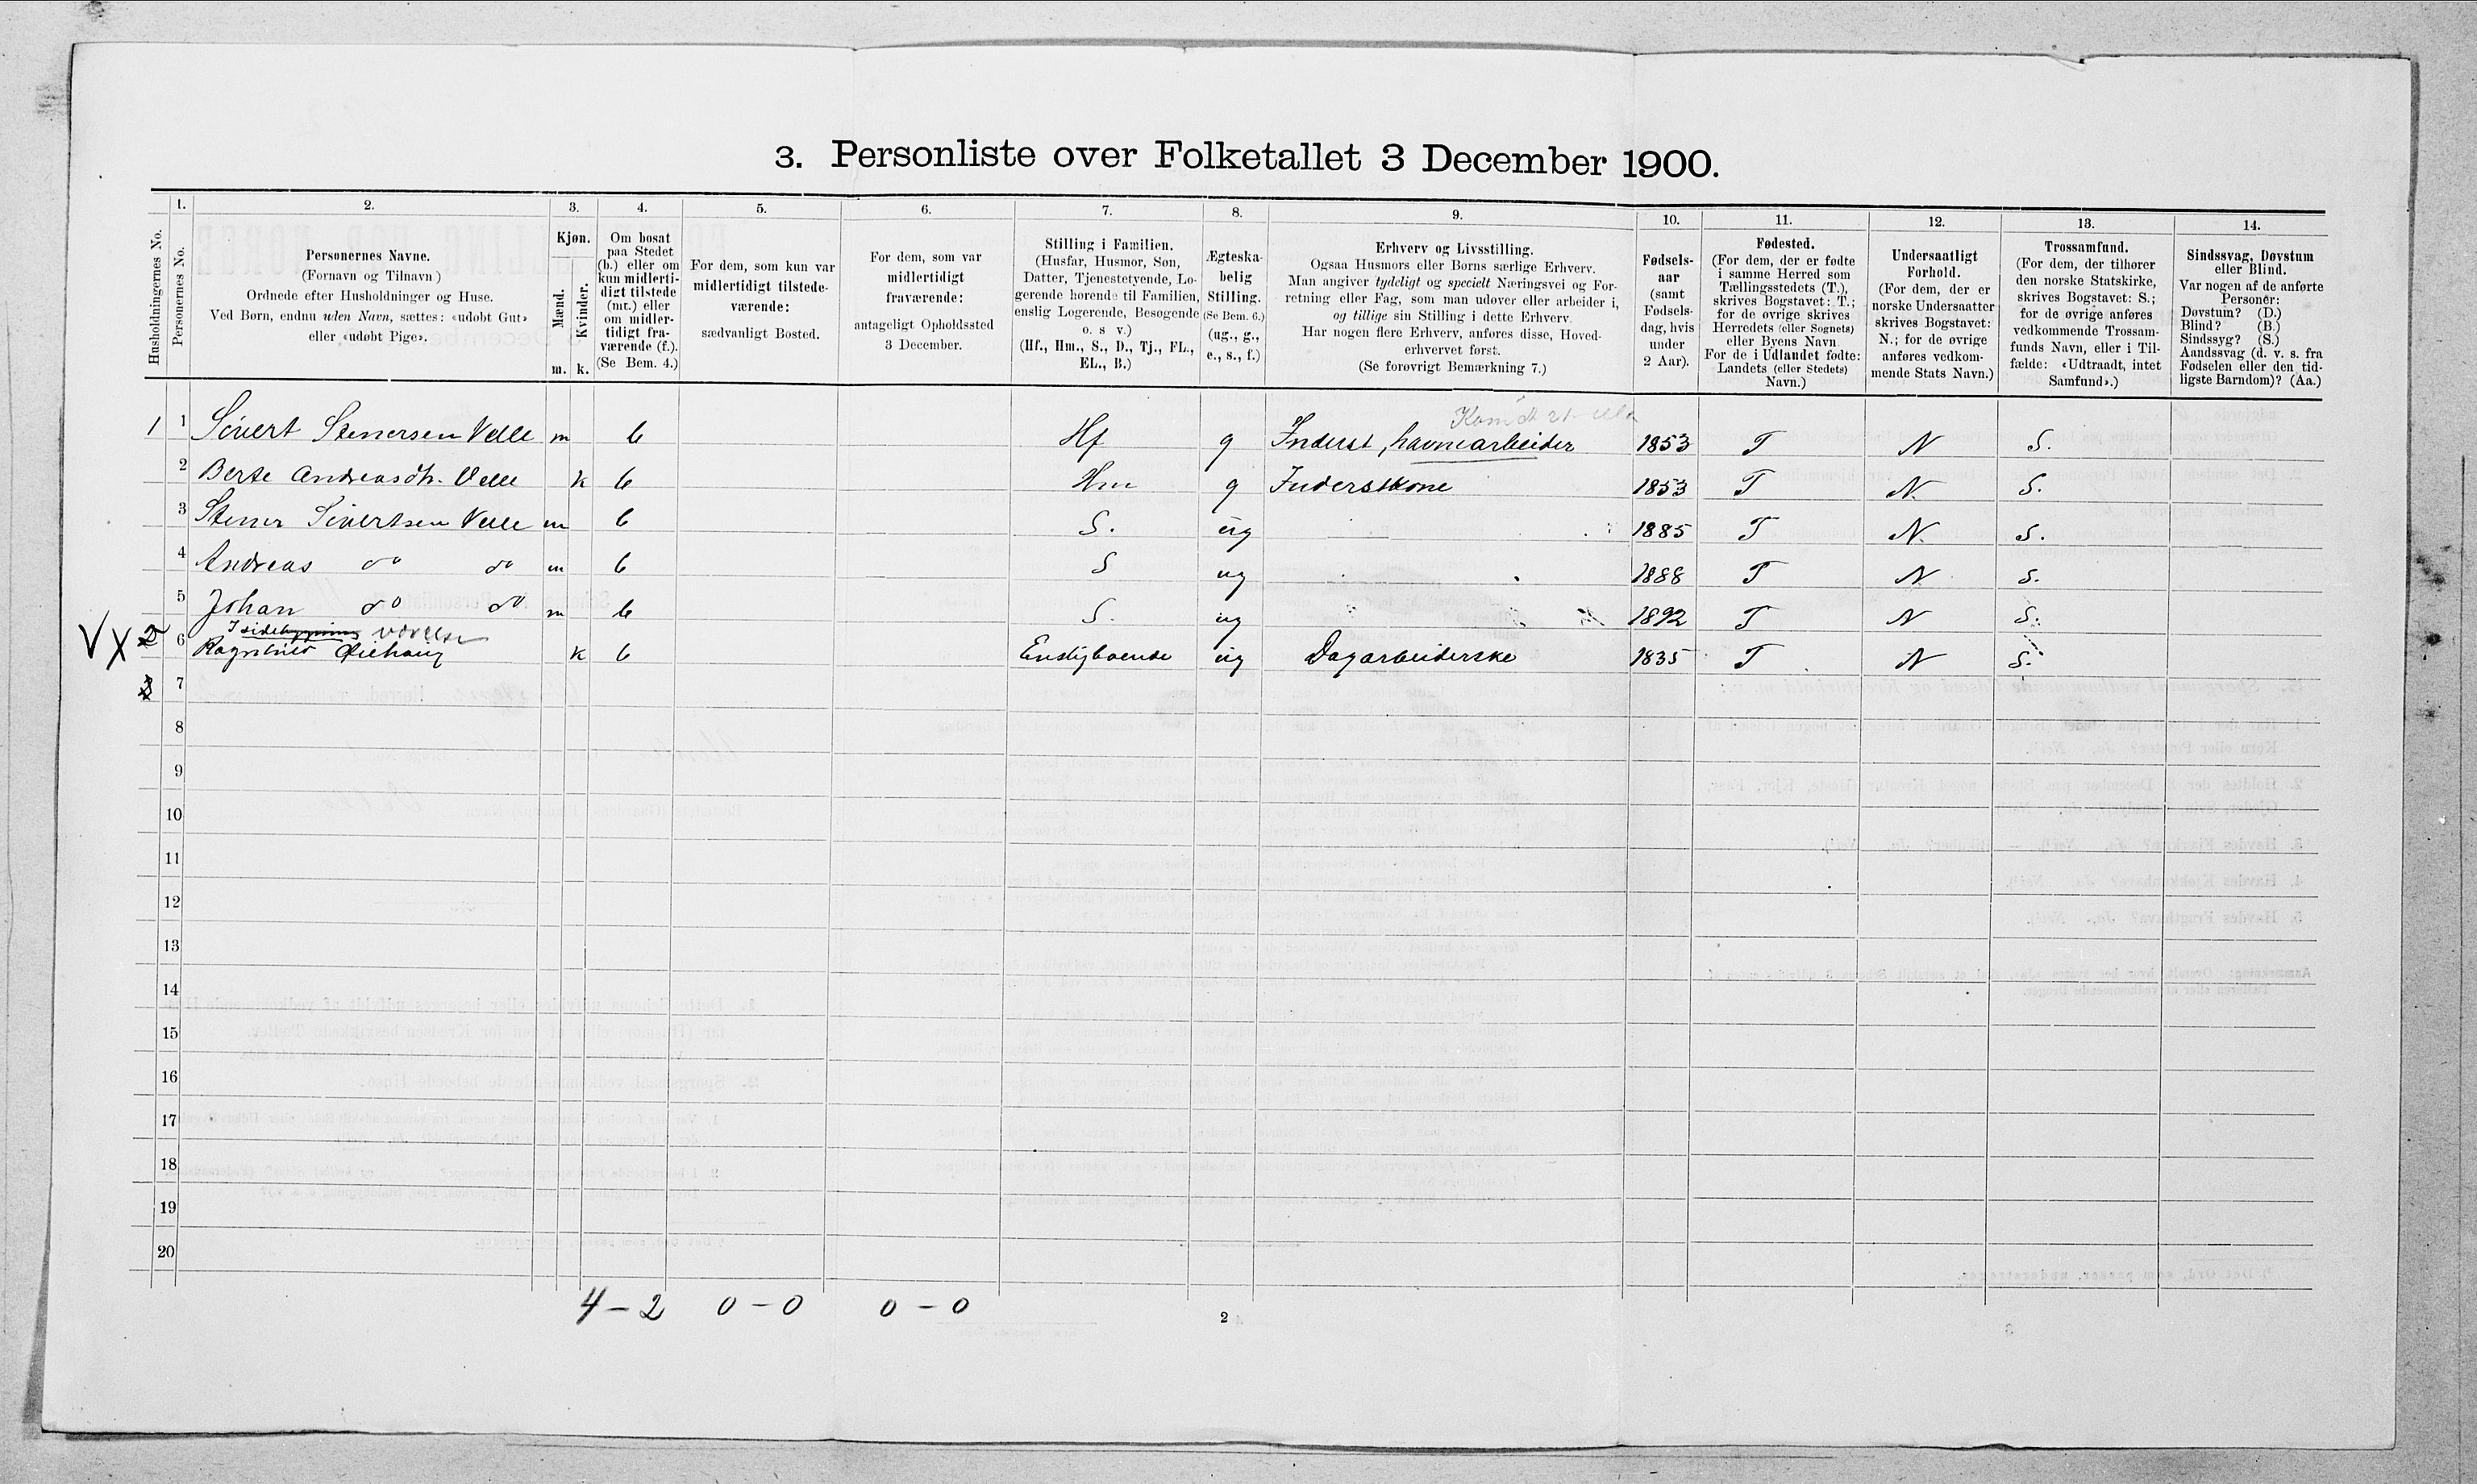 3. Personliste over Folketallet 3 December 1900.
1. 2. 3. 4. 5. 6. 7. 8. 9. 10. 11. 12. 13. 14.
Husholdningernes No.
Personernes No.
Personernes Navne.
(Fornavn og Tilnavn)
Ordnede efter Husholdninger og Huse.
Ved Børn, endnu uden Navn, sættes: «udøbt Gut»
eller «udøbt Pige».
Kjøn.
Mænd.
Kvinder.
m. k.
Om bosat
paa Stedet
(b.) eller om
kun midlerti-
digt tilstede
(mt.) eller
om midler-
tidigt fra-
værende (f.).
(Se Bem. 4.)
For dem, som kun var
midlertidigt tilstede-
værende:
sædvanligt Bosted.
For dem, som var
midlertidigt
fraværende:
antageligt Opholdssted
3 December.
Stilling i Familien.
(Husfar, Husmor, Søn,
Datter, Tjenestetyende, Lo-
gerende hørende til Familien,
enslig Logerende, Besøgende
o. s v.)
(Hf., Hm., S., D., Tj., FL.,
EL., B.)
Ægteska-
belig
Stilling.
(Se Bem. 6.)
(ug., g.,
e., s., f.)
Erhverv og Livsstilling.
Ogsaa Husmors eller Børns særlige Erhverv.
Man angiver tydeligt og specielt Næringsvei og For-
retning eller Fag, som man udøver eller arbeider i,
og tillige sin Stilling i dette Erhverv.
Har nogen flere Erhverv, anføres disse, Hoved-
erhvervet først.
(Se forøvrigt Bemærkning 7.)
Fødsels-
aar
(samt
Fødsels-
dag, hvis
under
2 Aar).
Fødested.
(For dem, der er fødte
i samme Herred som
Tællingsstedets (T.),
skrives Bogstavet: T.;
for de øvrige skrives
Herredets (eller Sognets)
eller Byens Navn
For de i Udlandet fødte:
Landets (eller Stedets)
Navn.)
Undersaatligt
Forhold.
(For dem, der er
norske Undersaatter
skrives Bogstavet:
N.; for de øvrige
anføres vedkom-
mende Stats Navn.)
Trossamfund.
(For dem, der tilhører
den norske Statskirke,
skrives Bogstavet: S.;
for de øvrige anføres
vedkommende Trossam-
funds Navn, eller i Til-
fælde: «Udtraadt, intet
Samfund».)
Sindssvag, Døvstum
eller Blind.
Var nogen af de anførte
Personer:
Døvstum? (D.)
Blind? (B.)
Sindssyg? (S.)
Aandssvag (d. v. s. fra
Fødselen eller den tid-
ligste Barndom)? (Aa.)
1 1 Sivert Stenersen Velle m b Hf g Inderst, havnearbeider 1853 T N S.
2 Berte Andreasdtr. Velle k b Hm g Inderstkone 1853 T N. S.
3 Stener Sivertsen Velle m b S. ug 1885 T N. S.
4 Andreas do do m b S ug 1888 T N S.
5 Johan do do m b S. ug 1892 T N S.
I sidebygning værelse
2 6 Ragnhild k b Ensligboende ug Dagarbeiderske 1835 T N S.
3 7
8
9
10
11
12
13
14
15
16
17
18
19
20
4 – 2 0 – 0 0 – 0
2